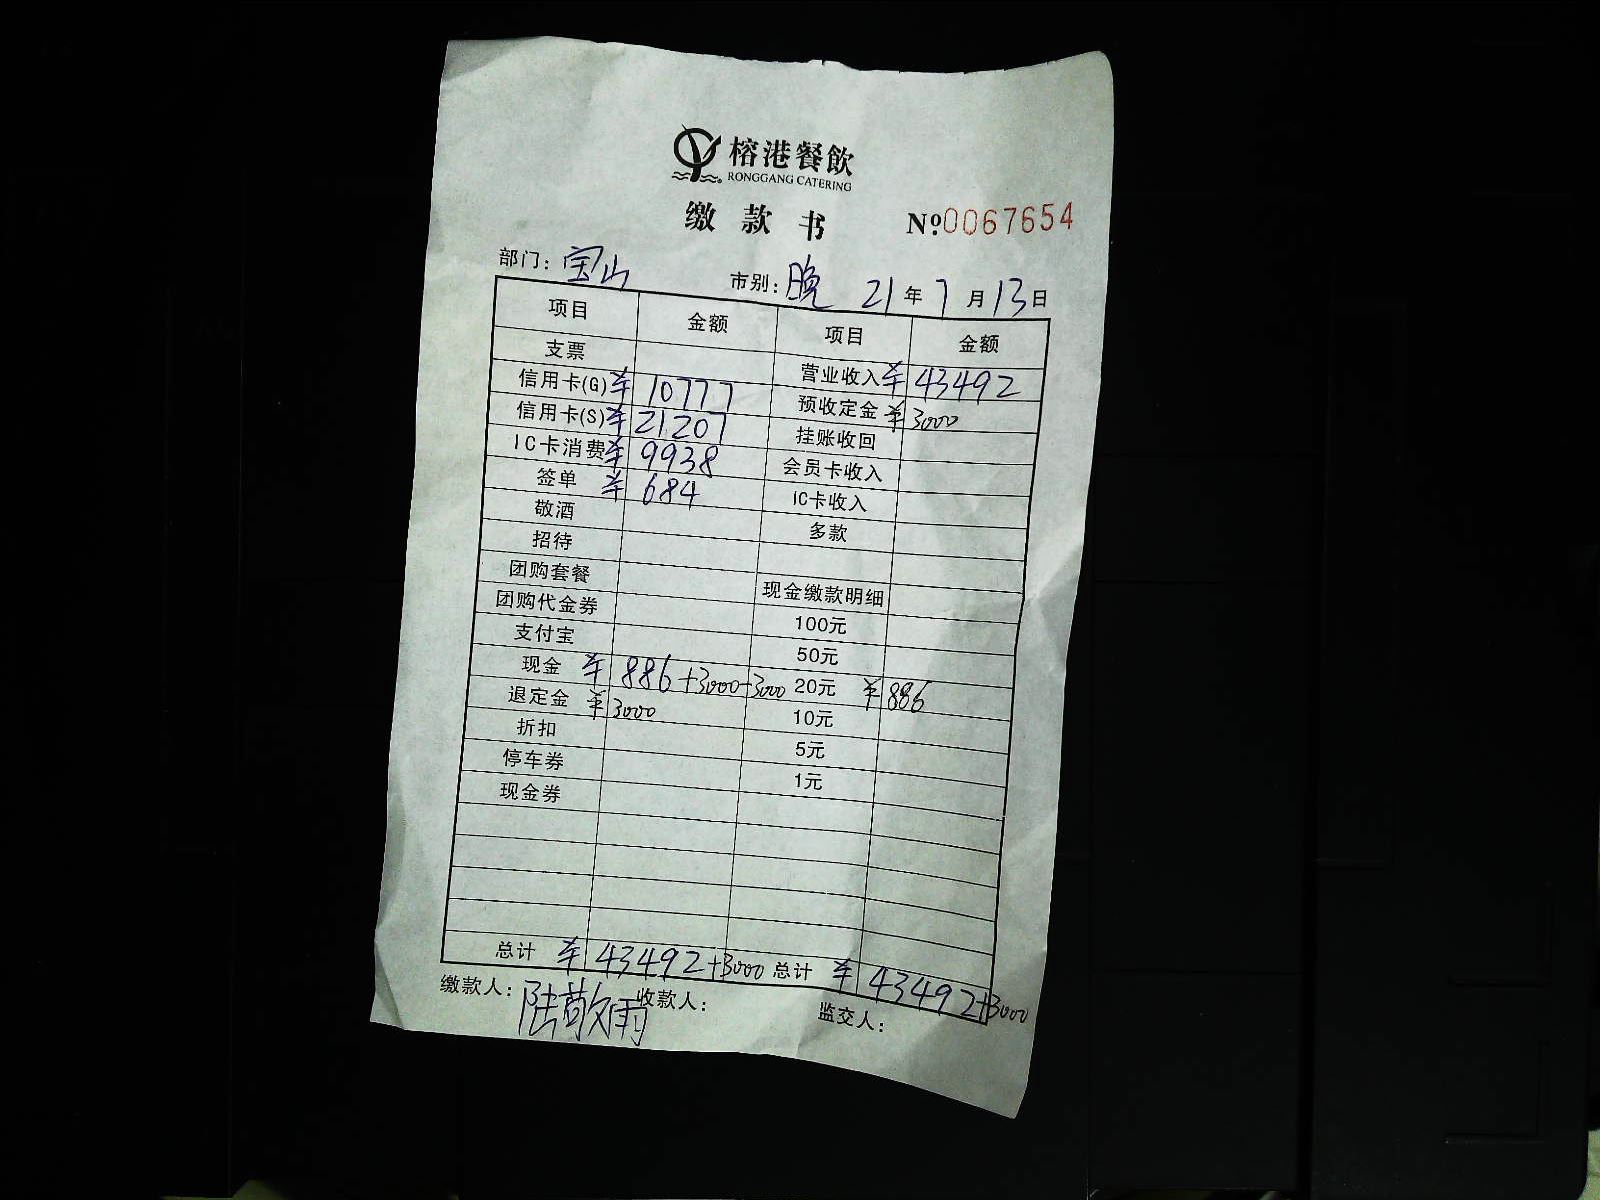 榕港餐飲
RONGGANG CATERING
缴款书 №0067654
部门：宝山 市别：晚 21年7月13日
项目 金额 项目 金额
支票 营业收入 ¥43492
信用卡(G) ¥10777 预收定金 ¥3000
信用卡(S) ¥21207 挂账收回
IC卡消费 ¥9938 会员卡收入
签单 ¥684 IC卡收入
敬酒 多款
招待
团购套餐 现金缴款明细
团购代金券 100元
支付宝 50元
现金 ¥886+3000-3000 20元 ¥886
退定金 ¥3000 10元
折扣 5元
停车券 1元
现金券
总计 ¥43492+3000 总计 ¥43492+3000
缴款人：陆敬雨 收款人： 监交人：